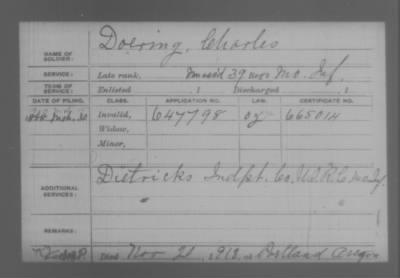 NAME OF SOLDIER: Doering, Charles
SERVICE: Late rank, 39 regt Mo. Inf.
TERM OF SERVICE: Enlisted , 1 Discharged , 1
DATE OF FILING. CLASS. APPLICATION NO. LAW. CERTIFICATE NO.
Mch. 30 Invalid, 647798 665014
Widow,
Minor,
ADDITIONAL SERVICES: Dietricks Indpt. Co. U.S.R.C. Mo. Inf.
REMARKS:
Died Nov 21, 1913, at Portland Oregon